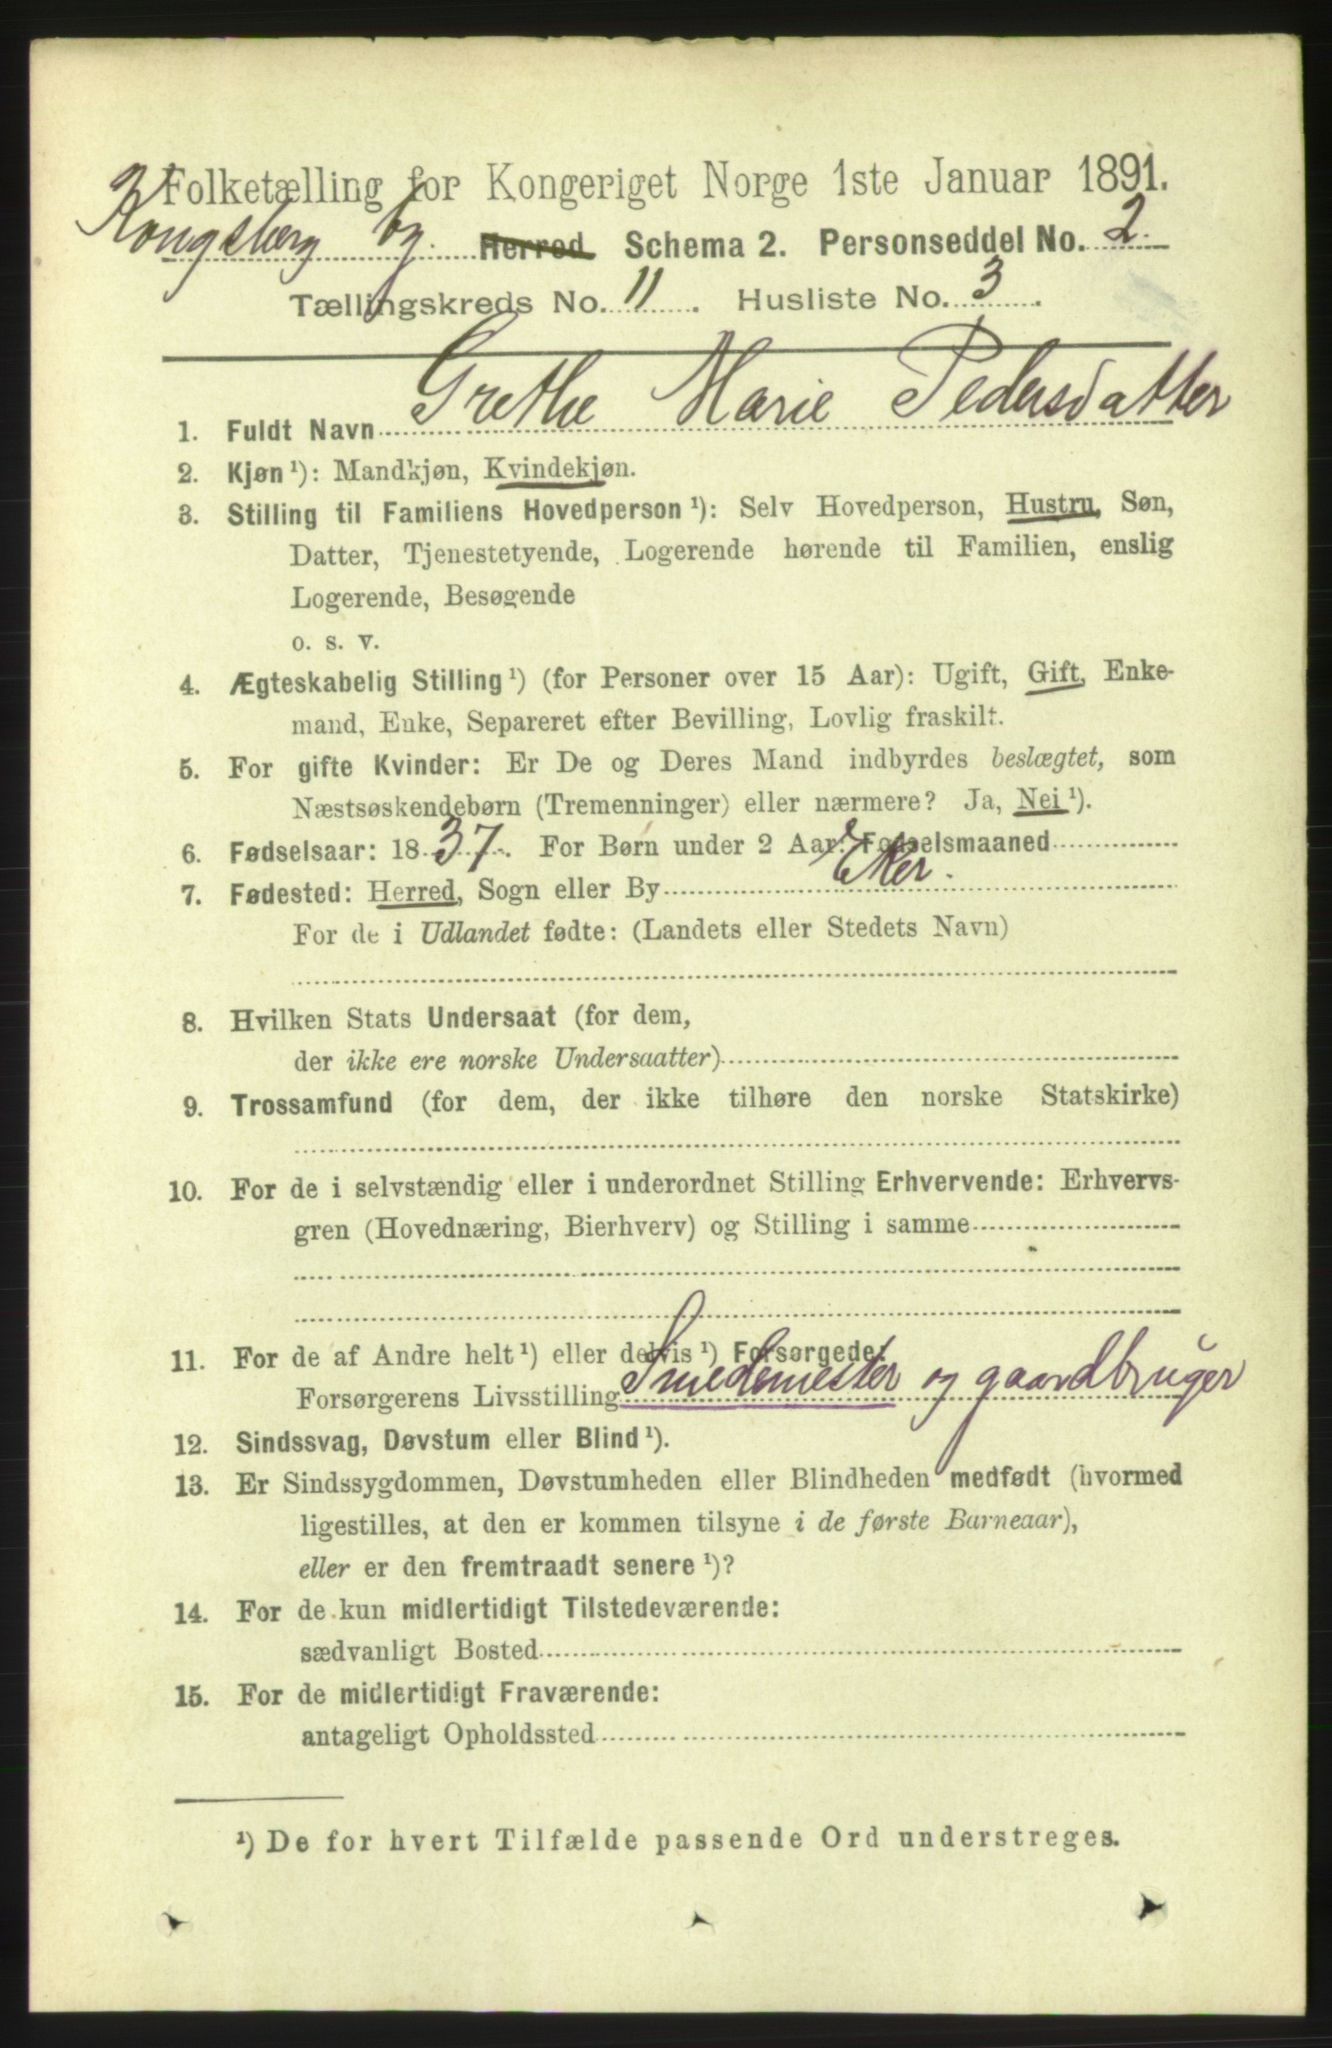 Folketælling for Kongeriget Norge 1ste Januar 1891.
Kongsberg by. Herred Schema 2. Personseddel No. 2.
Tællingskreds No. 11. Husliste No. 3.
1. Fuldt Navn Grethe Marie Pedersdatter
2. Kjøn ¹): Mandkjøn, Kvindekjøn.
3. Stilling til Familiens Hovedperson ¹): Selv Hovedperson, Hustru, Søn,
Datter, Tjenestetyende, Logerende hørende til Familien, enslig
Logerende, Besøgende
o. s. v.
4. Ægteskabelig Stilling ¹) (for Personer over 15 Aar): Ugift, Gift, Enke-
mand, Enke, Separeret efter Bevilling, Lovlig fraskilt.
5. For gifte Kvinder: Er De og Deres Mand indbyrdes beslægtet, som
Næstsøskendebørn (Tremenninger) eller nærmere? Ja, Nei ¹).
6. Fødselsaar: 1837. For Børn under 2 Aar: Fødselsmaaned
7. Fødested: Herred, Sogn eller By Eker.
For de i Udlandet fødte: (Landets eller Stedets Navn)
8. Hvilken Stats Undersaat (for dem,
der ikke ere norske Undersaatter)
9. Trossamfund (for dem, der ikke tilhøre den norske Statskirke)
10. For de i selvstændig eller i underordnet Stilling Erhvervende: Erhvervs-
gren (Hovednæring, Bierhverv) og Stilling i samme
11. For de af Andre helt ¹) eller delvis ¹) Forsørgede:
Forsørgerens Livsstilling Smedemester og gaardbruger
12. Sindssvag, Døvstum eller Blind ¹).
13. Er Sindssygdommen, Døvstumheden eller Blindheden medfødt (hvormed
ligestilles, at den er kommen tilsyne i de første Barneaar),
eller er den fremtraadt senere ¹)?
14. For de kun midlertidigt Tilstedeværende:
sædvanligt Bosted
15. For de midlertidigt Fraværende:
antageligt Opholdssted
¹) De for hvert Tilfælde passende Ord understreges.